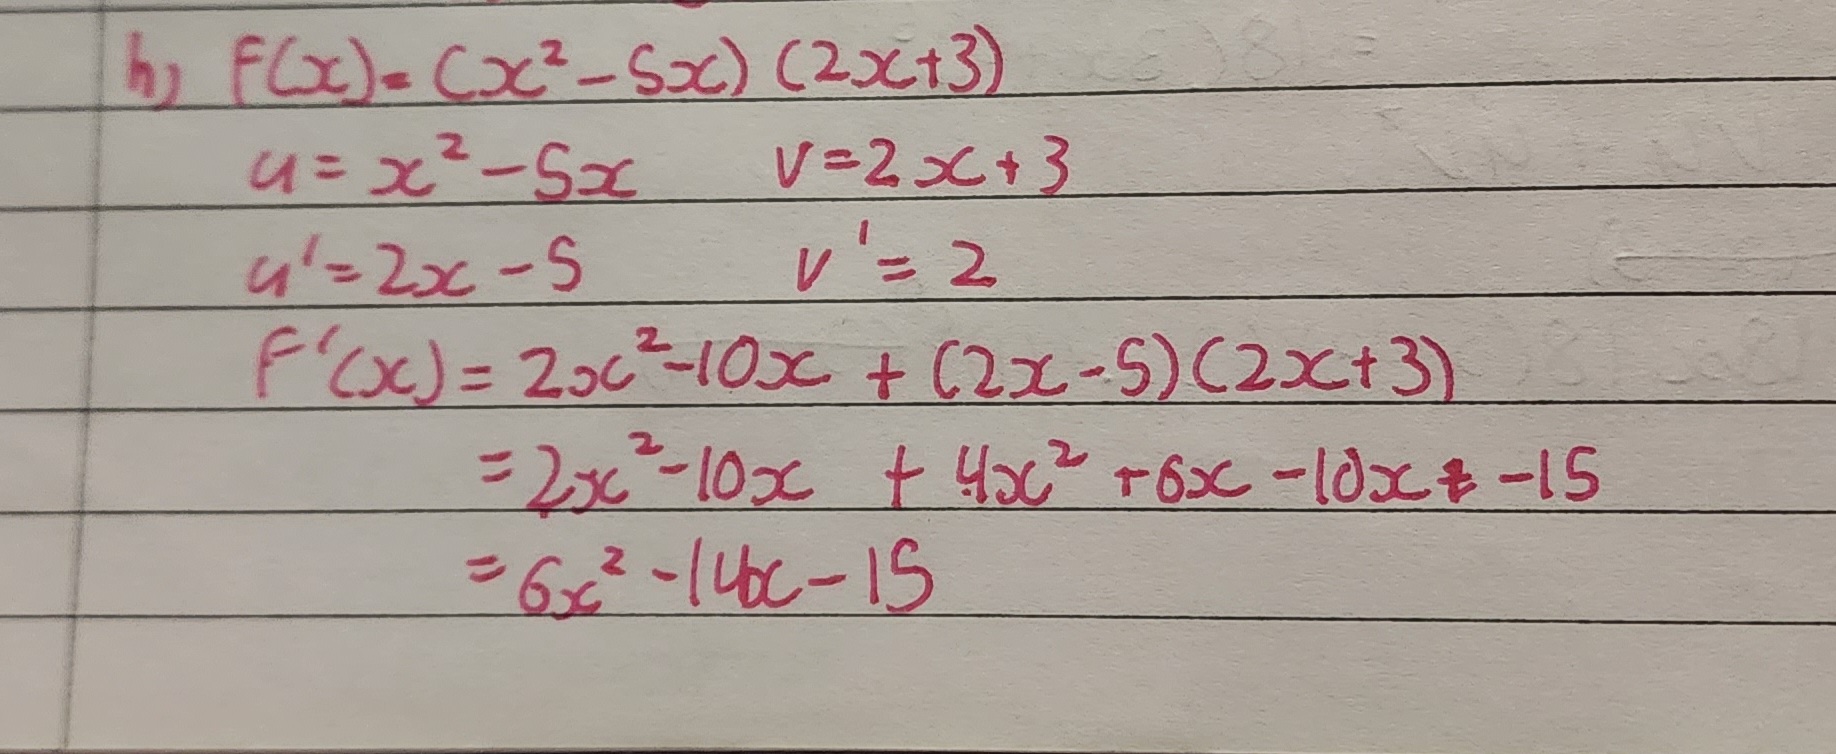 h) F(x) = (x² - 5x) (2x+3)
u = x² - 5x v = 2x + 3
u' = 2x - 5 v' = 2
F'(x) = 2x² - 10x + (2x - 5)(2x+3)
= 2x² - 10x + 4x² + 6x - 10x - 15
= 6x² - 14x - 15